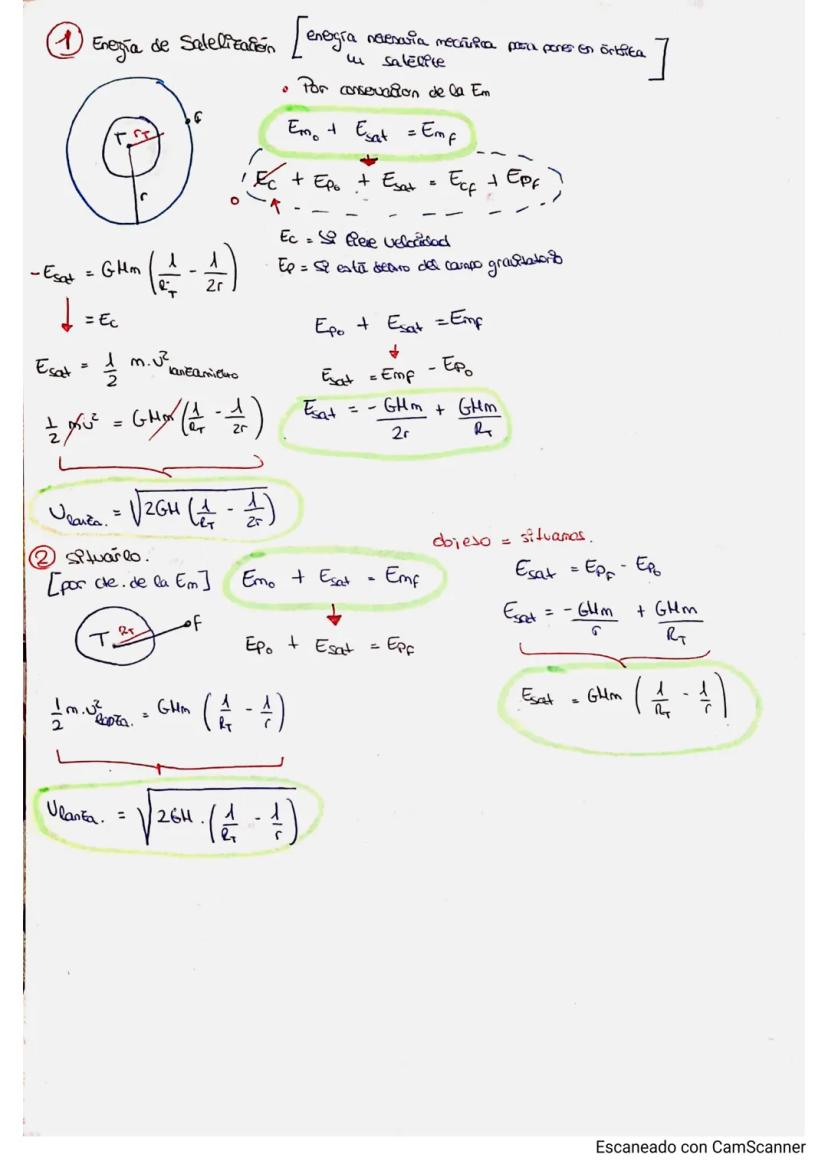 ① Energía de Satelización [energía necesaria mecánica para poner en órbita un satélite]
• Por conservación de la Em
Em₀ + Esat = Emf
Ec + Ep₀ + Esat = Ecf + Epf
0
T rT
r
Ec = Si tiene velocidad
Ep = Si está dentro del campo gravitatorio
- Esat = GMm (1/RT - 1/2r)
↓ = Ec
Esat = 1/2 m·v² lanzamiento
1/2 mv² = GMm (1/RT - 1/2r)
Vlanza. = √2GM (1/RT - 1/2r)
Ep₀ + Esat = Emf
Esat = Emf - Ep₀
Esat = - GMm/2r + GMm/RT
② Situarlo.
[por cte. de la Em]
Em₀ + Esat = Emf
T RT f
Ep₀ + Esat = Epf
1/2 m·v² lanza. = GMm (1/RT - 1/r)
Vlanza. = √2GM · (1/RT - 1/r)
objeso = situamos.
Esat = Epf - Ep₀
Esat = - GMm/r + GMm/RT
Esat = GMm (1/RT - 1/r)
Escaneado con CamScanner